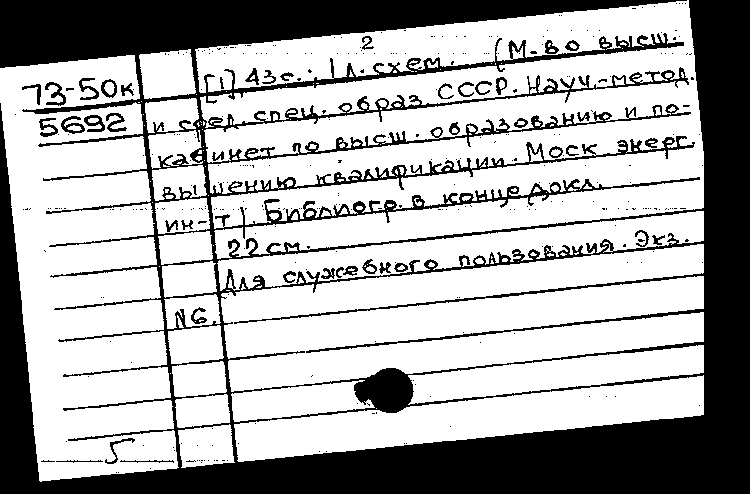 2
73-50к [1], 43 с.; 1 л. схем. (М-во высш.
5692 и сред. спец. образ. СССР. Науч.-метод.
кабинет по высш. образованию и по-
вышению квалификации. Моск. энерг.
ин-т). Библиогр. в конце докл.
22 см.
Для служебного пользования. Экз.
N6.
5